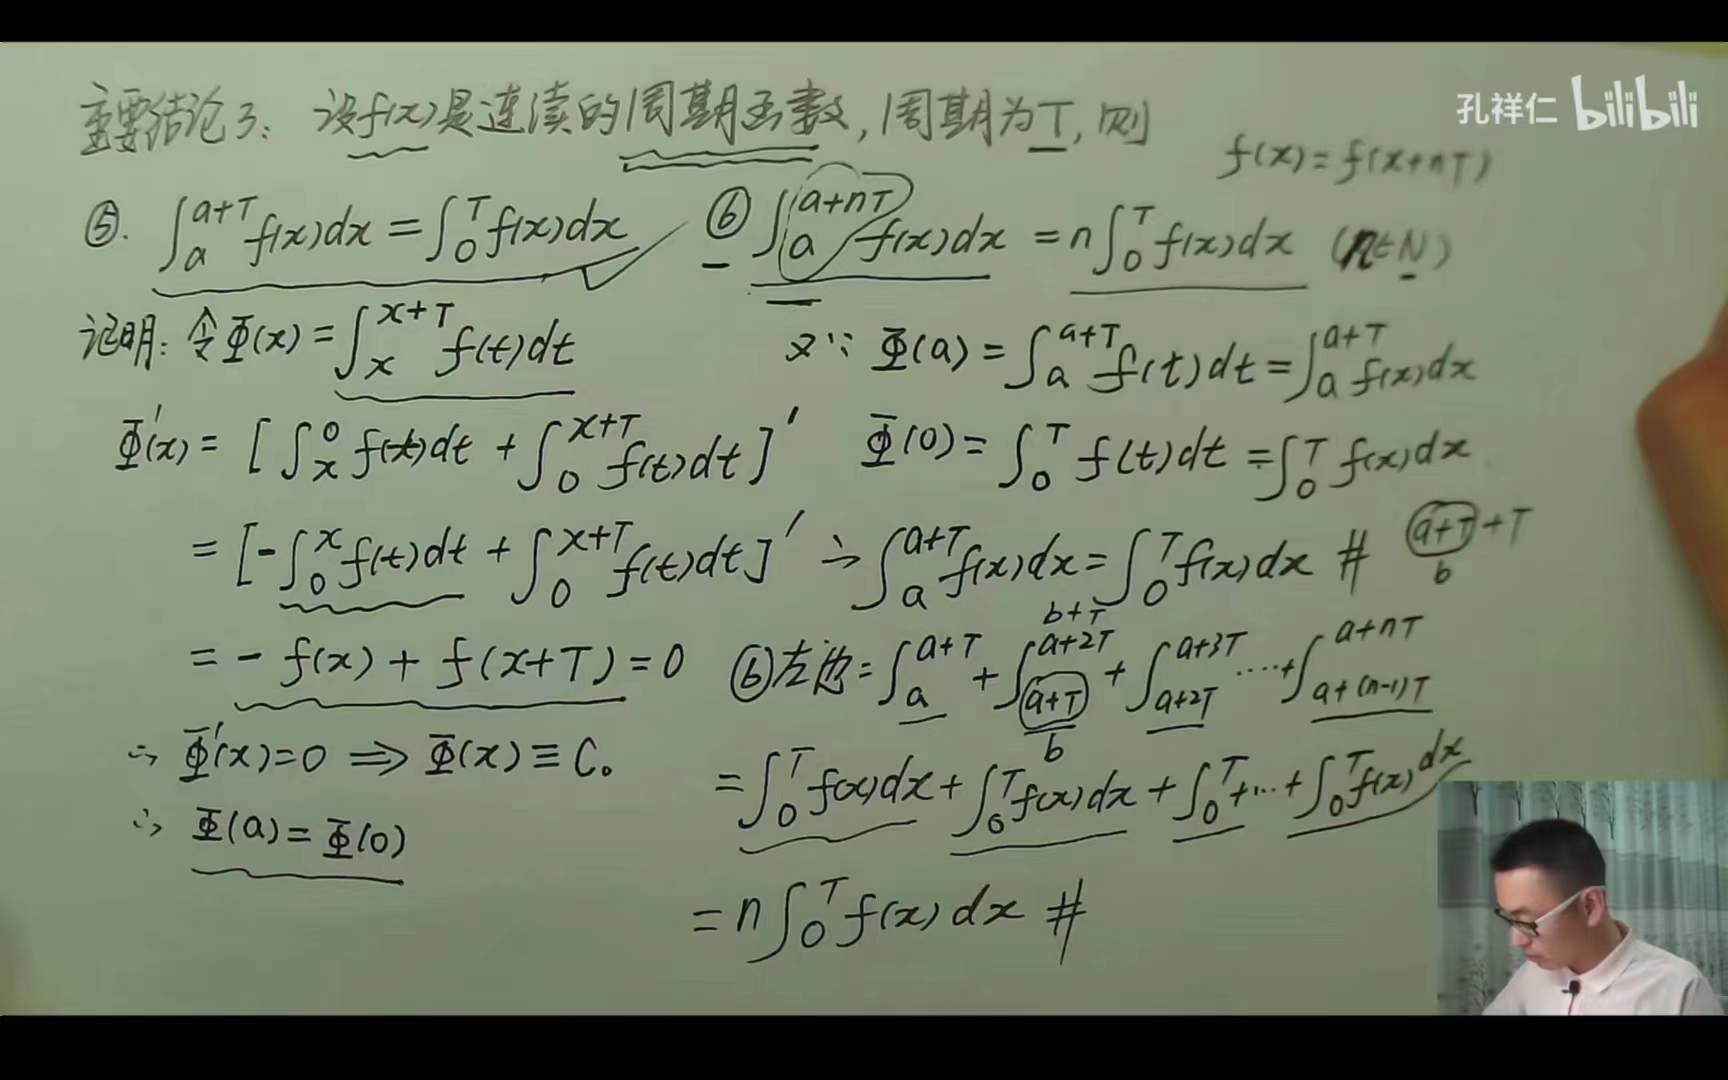 孔祥仁 bilibili
重要结论3：设f(x)是连续的周期函数，周期为T，则
f(x)=f(x+nT)
⑤. ∫_a^{a+T} f(x)dx = ∫_0^T f(x)dx ⑥ ∫_a^{a+nT} f(x)dx = n∫_0^T f(x)dx (n∈N)
证明：令Φ(x)=∫_x^{x+T} f(t)dt
Φ'(x)= [∫_x^0 f(t)dt + ∫_0^{x+T} f(t)dt]'
= [-∫_0^x f(t)dt + ∫_0^{x+T} f(t)dt]'
= - f(x) + f(x+T) = 0
∴ Φ'(x)=0 ⇒ Φ(x)≡C。
∴ Φ(a)=Φ(0)
又∵ Φ(a)=∫_a^{a+T} f(t)dt=∫_a^{a+T} f(x)dx
Φ(0)=∫_0^T f(t)dt=∫_0^T f(x)dx
∴ ∫_a^{a+T} f(x)dx=∫_0^T f(x)dx #
a+T+T
b
b+T
⑥左边=∫_a^{a+T} + ∫_{a+T}^{a+2T} + ∫_{a+2T}^{a+3T} ····+∫_{a+(n-1)T}^{a+nT}
b
=∫_0^T f(x)dx + ∫_0^T f(x)dx + ∫_0^T +··+ ∫_0^T f(x)dx
= n∫_0^T f(x)dx #